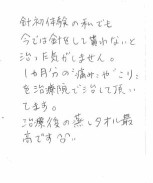 針初体験の私でも
今では針をして貰わないと
治った気がしません。
1ヵ月分の“痛み”や“こり”
を治療院で治して頂い
てます。
治療後の蒸しタオル最
高です♨